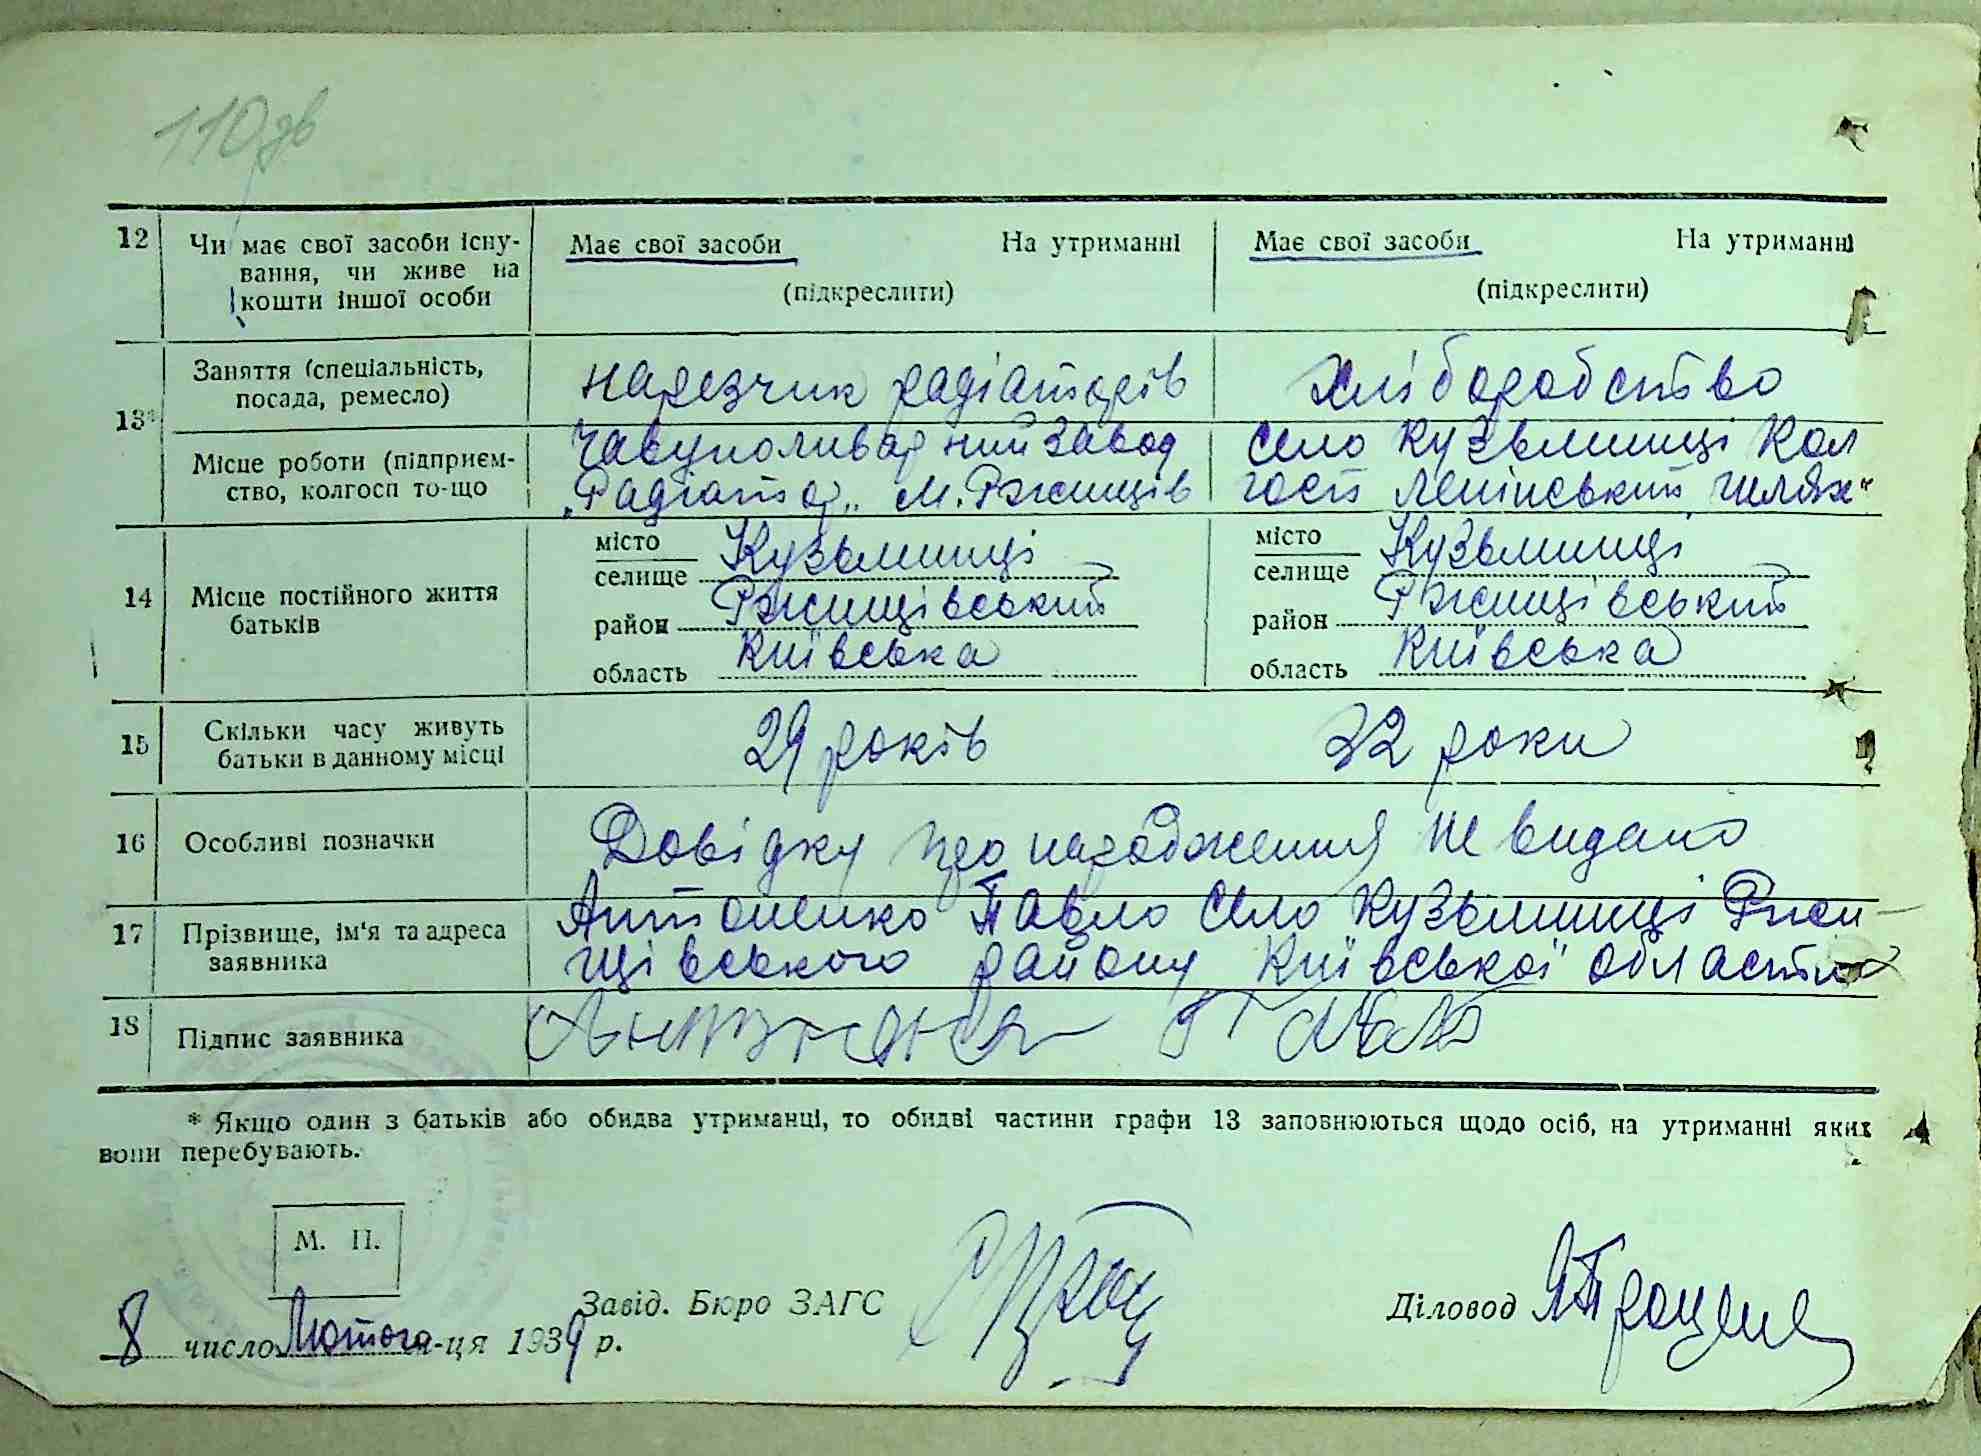 110 зв
12 Чи має свої засоби існу- Має свої засоби На утриманні Має свої засоби На утриманні
вання, чи живе на
кошти іншої особи (підкреслити) (підкреслити)
13* Заняття (спеціальність, нарезчик радіаторів хліборобство
посада, ремесло)
Місце роботи (підприєм- завод село Кузьминці Кол
ство, колгосп то-що „Радіатор„ м. Ржищів госп Ленінський шлях"
14 Місце постійного життя батьків
місто Кузьминці місто Кузьминці
селище селище
район Ржищівський район Ржищівський
область Київська область Київська
15 Скільки часу живуть 29 років 22 роки
батьки в данному місці
16 Особливі позначки Довідку про народження не видано
17 Прізвище, ім'я та адреса Антоненко Павло Село Кузьминці Ржи-
заявника щівського району Київської області
18 Підпис заявника
* Якщо один з батьків або обидва утриманці, то обидві частини графи 13 заповнюються щодо осіб, на утриманні яких
вони перебувають.
М. П.
Завід. Бюро ЗАГС Діловод
8 число Лютого м-ця 1939 р.